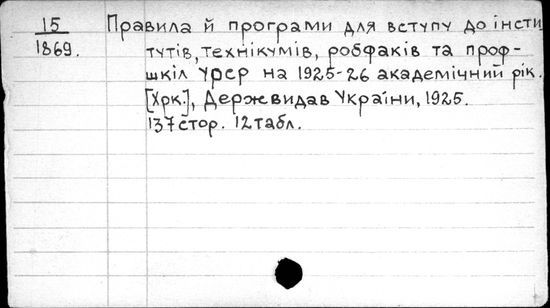 15 Правила й програми для вступу до інсти
1869. тутів, технікумів, робфаків та проф-
шкіл УРСР на 1925-26 академічний рік.
[Хрк.], Держвидав України, 1925.
137 стор. 12 табл.